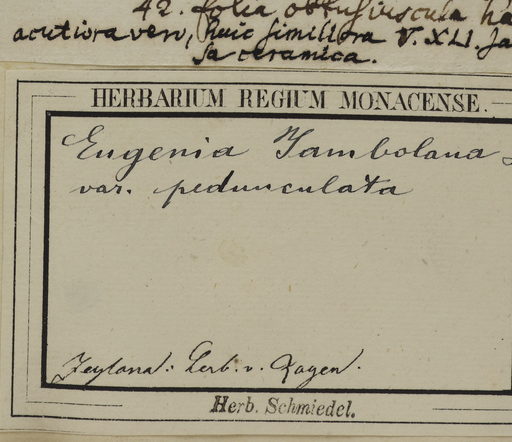 42. folia obtusiuscula ha
acutiora vero, huic similiora V. XLI. Ja
sa ceramica.
HERBARIUM REGIUM MONACENSE.
Eugenia Jambolana
var. pedunculata
Zeylona: Herb. v. Royen.
Herb. Schmiedel.